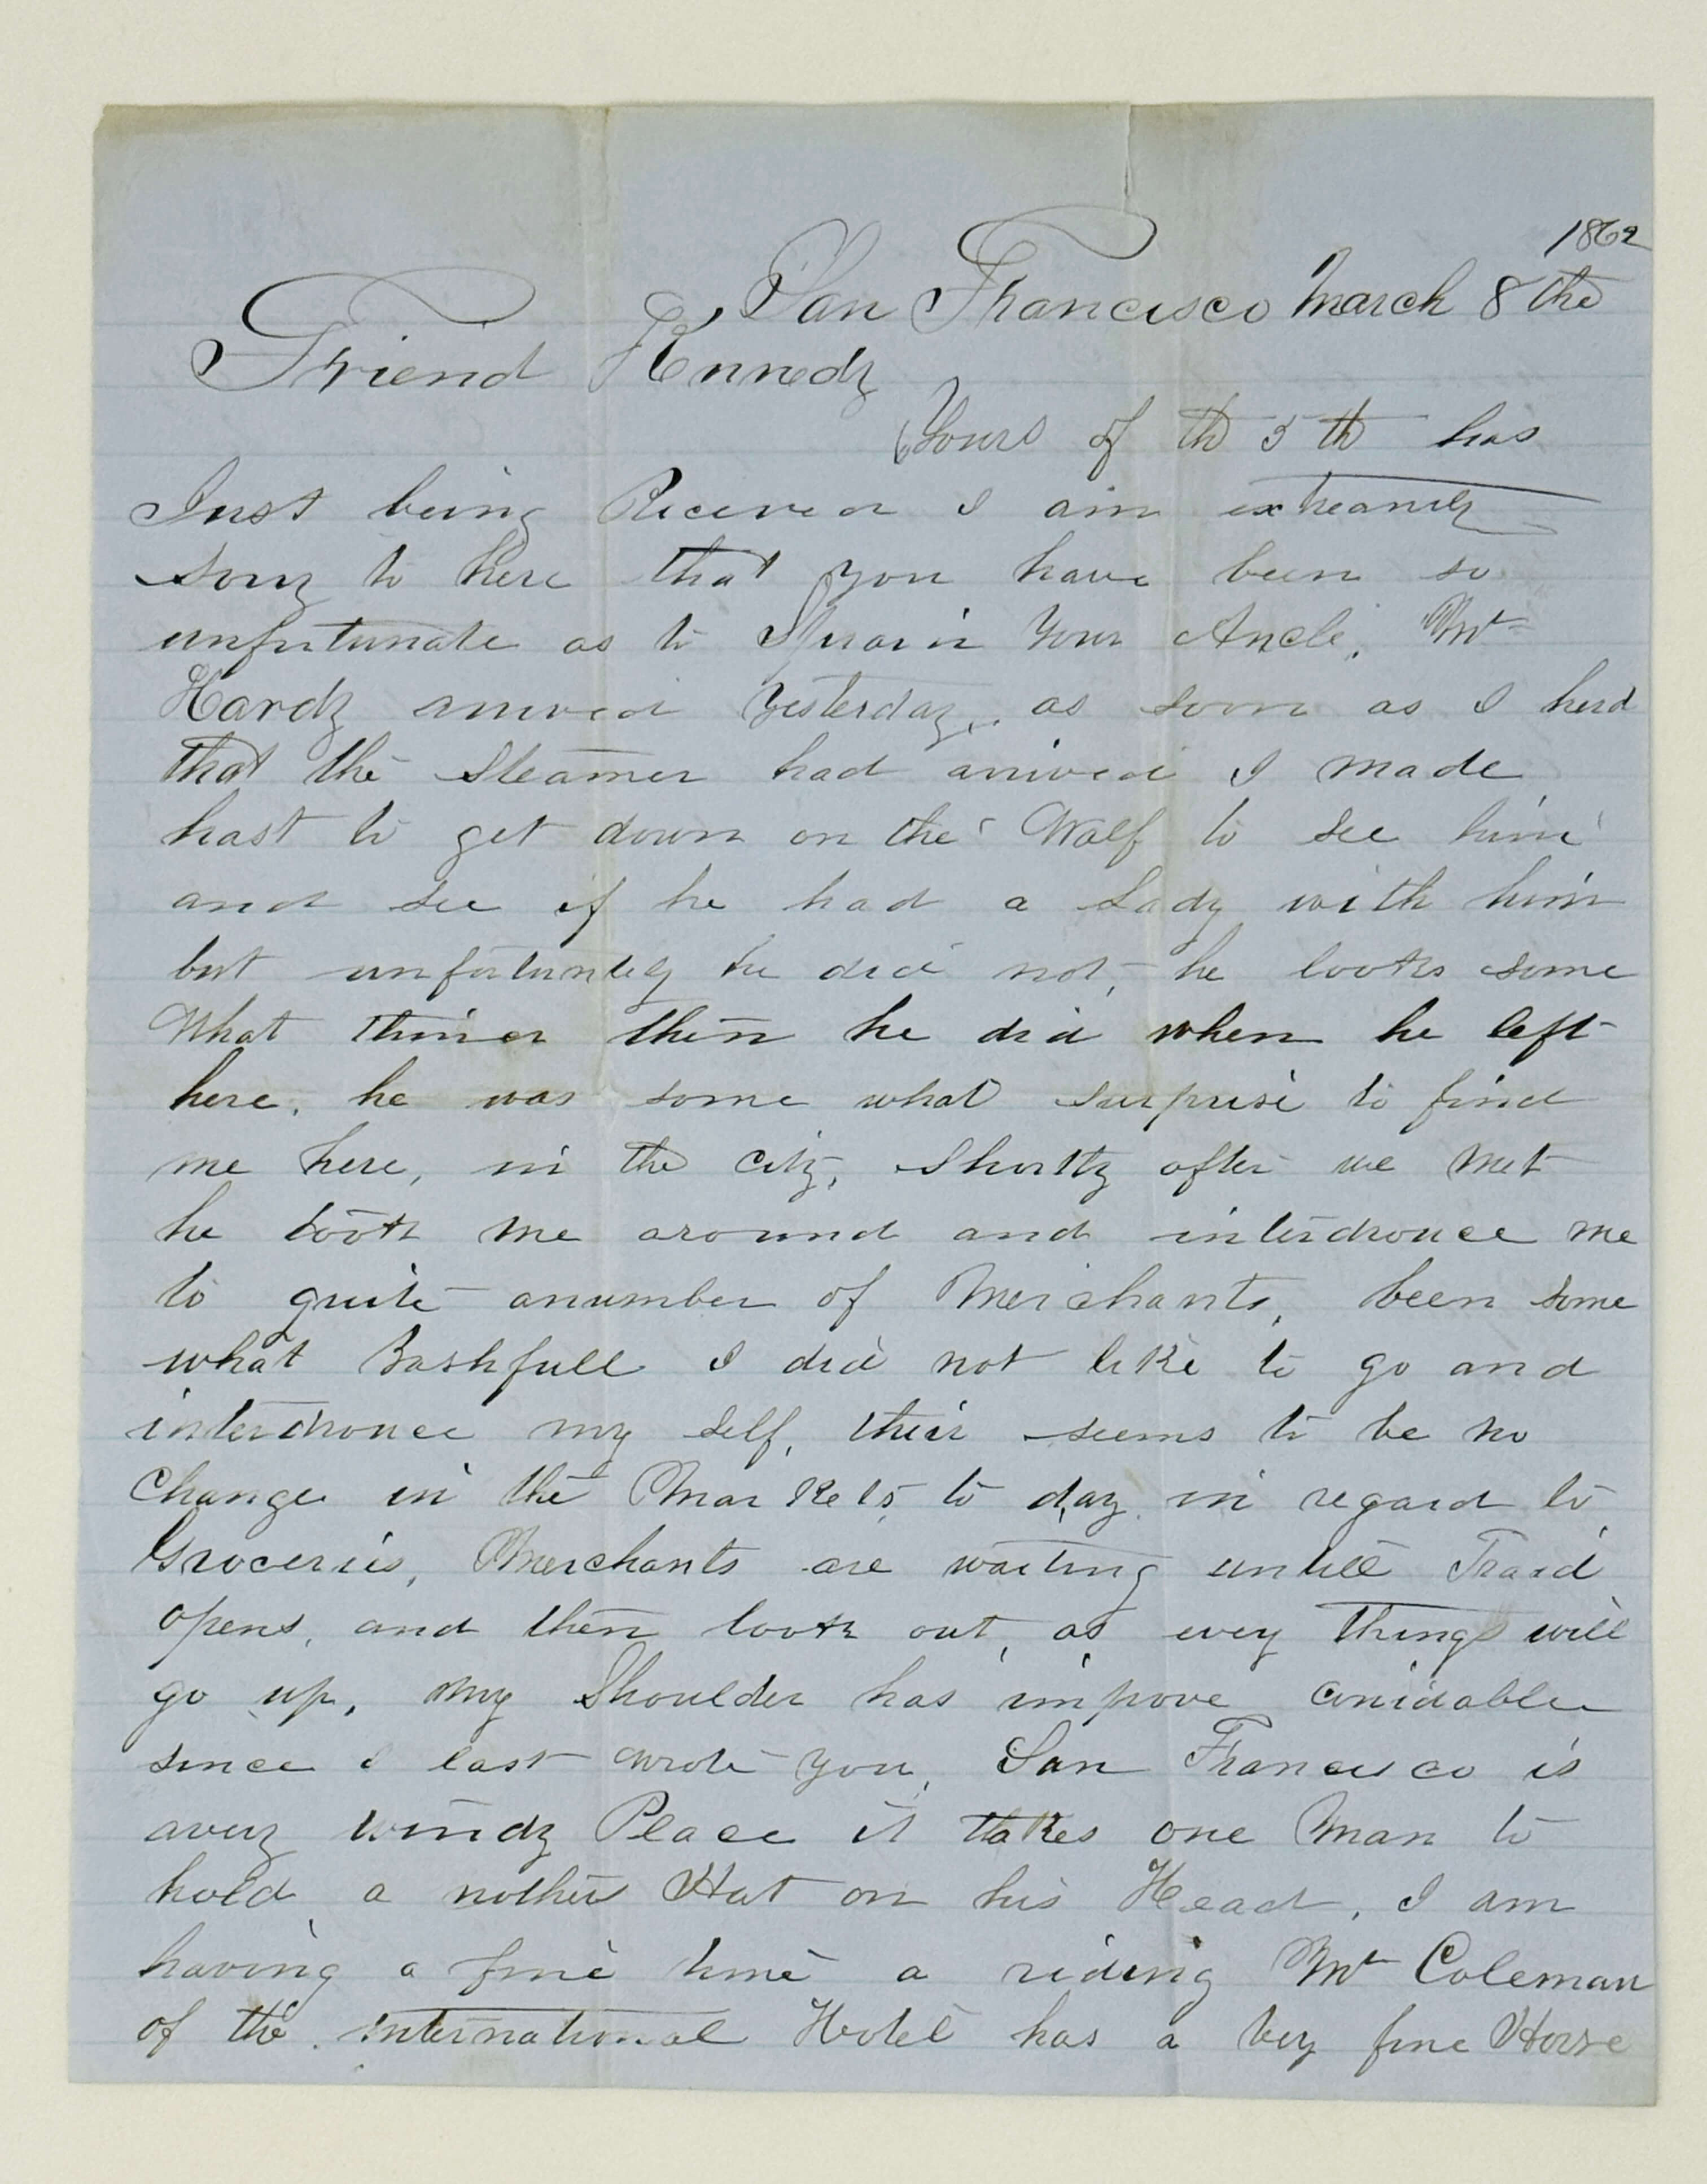 1862
San Francisco March 8 the
Friend Kennedy
Yours of th 5 th has
Just being Received I am extreamly
sorry to here that you have been so
unfortunate as to Sprain Your Ancle, Mr
Hardy arrived Yesterday, as soon as I herd
that the steamer had arrived I made
hast to get down on the Walf to see him
and see if he had a Lady with him
but unfortuntely he did not, he looks some
What thiner then he did when he left
here, he was some what surprise to find
me here, in the city, shortly after we met
he took me around and interdrouce me
to quite anumber of Merchants, been some
what Bashfull I did not like to go and
interdrouce my self, their seems to be no
change in the Markets to day in regard to
Groceries, Merchants are waiting untill Traid
opens, and then look out, as evey things will
go up, my Shoulder has impove conidable
since I last wrote you, San Francisco is
avery windy Place it takes one Man to
hold a nother Hat on his Head, I am
having a fine time a riding Mr Coleman
of the international Hotel has a very fine Horse